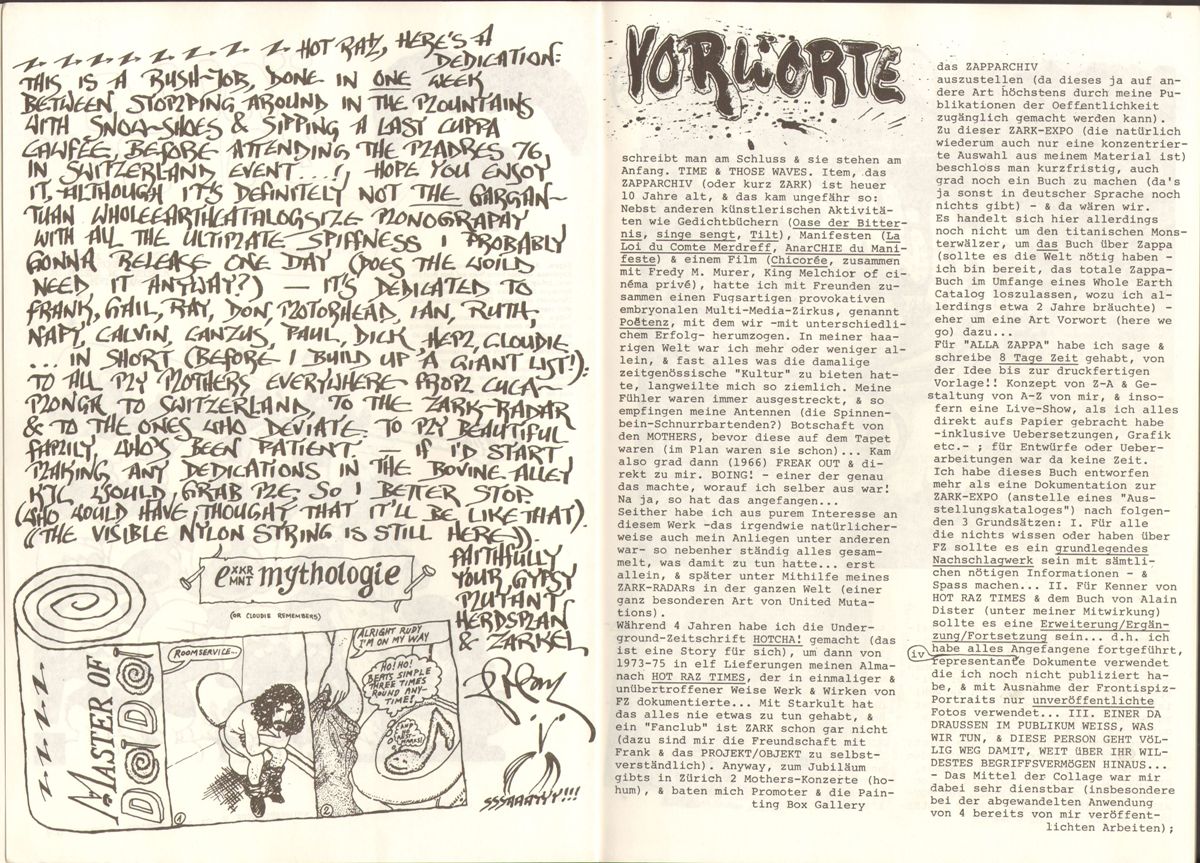 HOT RAZ, HERE'S A
DEDICATION:
THIS IS A RUSH-JOB, DONE IN ONE WEEK
BETWEEN STOMPING AROUND IN THE MOUNTAINS
WITH SNOW-SHOES & SIPPING A LAST CUPPA
CAWFEE BEFORE ATTENDING THE MADRES 76,
IN SWITZERLAND EVENT...!, HOPE YOU ENJOY
IT, ALTHOUGH IT'S DEFINITELY NOT THE GARGAN-
TUAN WHOLEEARTHCATALOGSIZE MONOGRAPAY
WITH ALL THE ULTIMATE SPIFFNESS I PROBABLY
GONNA RELEASE ONE DAY (DOES THE WOILD
NEED IT ANYWAY?) — IT'S DEDICATED TO
FRANK, GAIL, RAY, DON, MOTORHEAD, IAN, RUTH,
NAPY, CALVIN, CANZUS, PAUL, DICK, HEM, CLOUDIE
... IN SHORT (BEFORE I BUILD UP A GIANT LIST!):
TO ALL MY MOTHERS EVERYWHERE FROM CUCA-
MONGA TO SWITZERLAND, TO THE ZARK-RADAR
& TO THE ONES WHO DEVIATE. TO MY BEAUTIFUL
FAMILY, WHO'S BEEN PATIENT. — IF I'D START
MAKING ANY DEDICATIONS IN THE BOVINE ALLEY
KYC WOULD GRAB ME. SO I BETTER STOP.
(WHO WOULD HAVE THOUGHT THAT IT'LL BE LIKE THAT).
((THE VISIBLE NYLON STRING IS STILL HERE)).
FAITHFULLY
YOUR, GYPSY
MUTANT
HERDSMAN
& ZARKEL
SSSAAATYY!!!
eXKR MNT mythologie
(OR CLOUDIE REMEMBERS)
MASTER OF
DOIDOI
ROOMSERVICE...
1
ALRIGHT RUDY
I'M ON MY WAY
HO! HO!
BEATS SIMPLE
THREE TIMES
ROUND ANY-
TIME!
2
VORWORTE
schreibt man am Schluss & sie stehen am
Anfang. TIME & THOSE WAVES. Item, das
ZAPPARCHIV (oder kurz ZARK) ist heuer
10 Jahre alt, & das kam ungefähr so:
Nebst anderen künstlerischen Aktivitä-
ten wie Gedichtbüchern (Oase der Bitter-
nis, singe sengt, Tilt), Manifesten (La
Loi du Comte Merdreff, AnarCHIE du Mani-
feste) & einem Film (Chicorée, zusammen
mit Fredy M. Murer, King Melchior of ci-
nëma privé), hatte ich mit Freunden zu-
sammen einen Fugsartigen provokativen
embryonalen Multi-Media-Zirkus, genannt
Poëtenz, mit dem wir -mit unterschiedli-
chem Erfolg- herumzogen. In meiner haa-
rigen Welt war ich mehr oder weniger al-
lein, & fast alles was die damalige
zeitgenössische "Kultur" zu bieten hat-
te, langweilte mich so ziemlich. Meine
Fühler waren immer ausgestreckt, & so
empfingen meine Antennen (die Spinnen-
bein-Schnurrbartenden?) Botschaft von
den MOTHERS, bevor diese auf dem Tapet
waren (im Plan waren sie schon)... Kam
also grad dann (1966) FREAK OUT & di-
rekt zu mir. BOING! - einer der genau
das machte, worauf ich selber aus war!
Na ja, so hat das angefangen...
Seither habe ich aus purem Interesse an
diesem Werk -das irgendwie natürlicher-
weise auch mein Anliegen unter anderen
war- so nebenher ständig alles gesam-
melt, was damit zu tun hatte... erst
allein, & später unter Mithilfe meines
ZARK-RADARs in der ganzen Welt (einer
ganz besonderen Art von United Muta-
tions).
Während 4 Jahren habe ich die Under-
ground-Zeitschrift HOTCHA! gemacht (das
ist eine Story für sich), um dann von
1973-75 in elf Lieferungen meinen Alma-
nach HOT RAZ TIMES, der in einmaliger &
unübertroffener Weise Werk & Wirken von
FZ dokumentierte... Mit Starkult hat
das alles nie etwas zu tun gehabt, &
ein "Fanclub" ist ZARK schon gar nicht
(dazu sind mir die Freundschaft mit
Frank & das PROJEKT/OBJEKT zu selbst-
verständlich). Anyway, zum Jubiläum
gibts in Zürich 2 Mothers-Konzerte (ho-
hum), & baten mich Promoter & die Pain-
ting Box Gallery
das ZAPPARCHIV
auszustellen (da dieses ja auf an-
dere Art höchstens durch meine Pu-
blikationen der Oeffentlichkeit
zugänglich gemacht werden kann).
Zu dieser ZARK-EXPO (die natürlich
wiederum auch nur eine konzentrier-
te Auswahl aus meinem Material ist)
beschloss man kurzfristig, auch
grad noch ein Buch zu machen (da's
ja sonst in deutscher Sprache noch
nichts gibt) - & da wären wir.
Es handelt sich hier allerdings
noch nicht um den titanischen Mons-
terwälzer, um das Buch über Zappa
(sollte es die Welt nötig haben -
ich bin bereit, das totale Zappa-
Buch im Umfange eines Whole Earth
Catalog loszulassen, wozu ich al-
lerdings etwa 2 Jahre bräuchte) -
eher um eine Art Vorwort (here we
go) dazu...
Für "ALLA ZAPPA" habe ich sage &
schreibe 8 Tage Zeit gehabt, von
der Idee bis zur druckfertigen
Vorlage!! Konzept von Z-A & Ge-
staltung von A-Z von mir, & inso-
fern eine Live-Show, als ich alles
direkt aufs Papier gebracht habe
-inklusive Uebersetzungen, Grafik
etc.- ; für Entwürfe oder Ueber-
arbeitungen war da keine Zeit.
Ich habe dieses Buch entworfen
mehr als eine Dokumentation zur
ZARK-EXPO (anstelle eines "Aus-
stellungskataloges") nach folgen-
den 3 Grundsätzen: I. Für alle
die nichts wissen oder haben über
FZ sollte es ein grundlegendes
Nachschlagwerk sein mit sämtli-
chen nötigen Informationen - &
Spass machen... II. Für Kenner von
HOT RAZ TIMES & dem Buch von Alain
Dister (unter meiner Mitwirkung)
sollte es eine Erweiterung/Ergän-
zung/Fortsetzung sein... d.h. ich
iv
habe alles Angefangene fortgeführt,
representante Dokumente verwendet
die ich noch nicht publiziert ha-
be, & mit Ausnahme der Frontispiz-
Portraits nur unveröffentlichte
Fotos verwendet... III. EINER DA
DRAUSSEN IM PUBLIKUM WEISS, WAS
WIR TUN, & DIESE PERSON GEHT VÖL-
LIG WEG DAMIT, WEIT ÜBER IHR WIL-
DESTES BEGRIFFSVERMÖGEN HINAUS...
- Das Mittel der Collage war mir
dabei sehr dienstbar (insbesondere
bei der abgewandelten Anwendung
von 4 bereits von mir veröffent-
lichten Arbeiten);